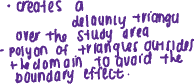 • creates a
delaunty triangu
over the study area
- polyon of triangues outsides
the domain to avoid the
boundary effect.